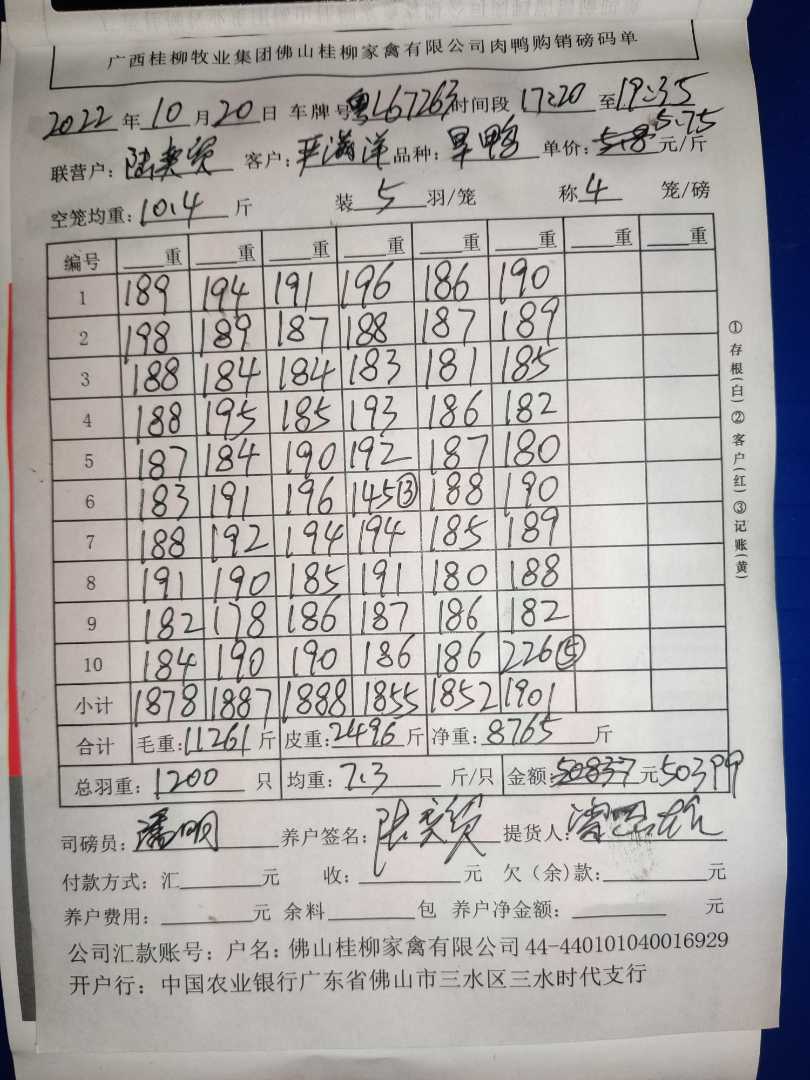 广西桂柳牧业集团佛山桂柳家禽有限公司肉鸭购销磅码单
2022年10月20日 车牌号粤L67263时间段17:20至19:35
5.75
联营户: 客户: 品种:旱鸭 单价:5.8元/斤
空笼均重:10.4斤 装5羽/笼 称4笼/磅
编号 重 重 重 重 重 重 重 重
1 189 194 191 196 186 190
2 198 189 187 188 187 189
3 188 184 184 183 181 185
4 188 195 185 193 186 182
5 187 184 190 192 187 180
6 183 191 196 145⑬ 188 190
7 188 192 194 194 185 189
8 191 190 185 191 180 188
9 182 178 186 187 186 182
10 184 190 190 186 186 226⑤
小计 1878 1887 1888 1855 1852 1901
合计 毛重:11261斤 皮重:2496斤 净重:8765斤
总羽重:1200只 均重:7.3斤/只 金额:50837元50399
司磅员:潘明 养户签名: 提货人:
付款方式:汇 元 收: 元 欠(余)款: 元
养户费用: 元 余料 包 养户净金额: 元
公司汇款账号:户名:佛山桂柳家禽有限公司44-440101040016929
开户行:中国农业银行广东省佛山市三水区三水时代支行
①存根(白)②客户(红)③记账(黄)